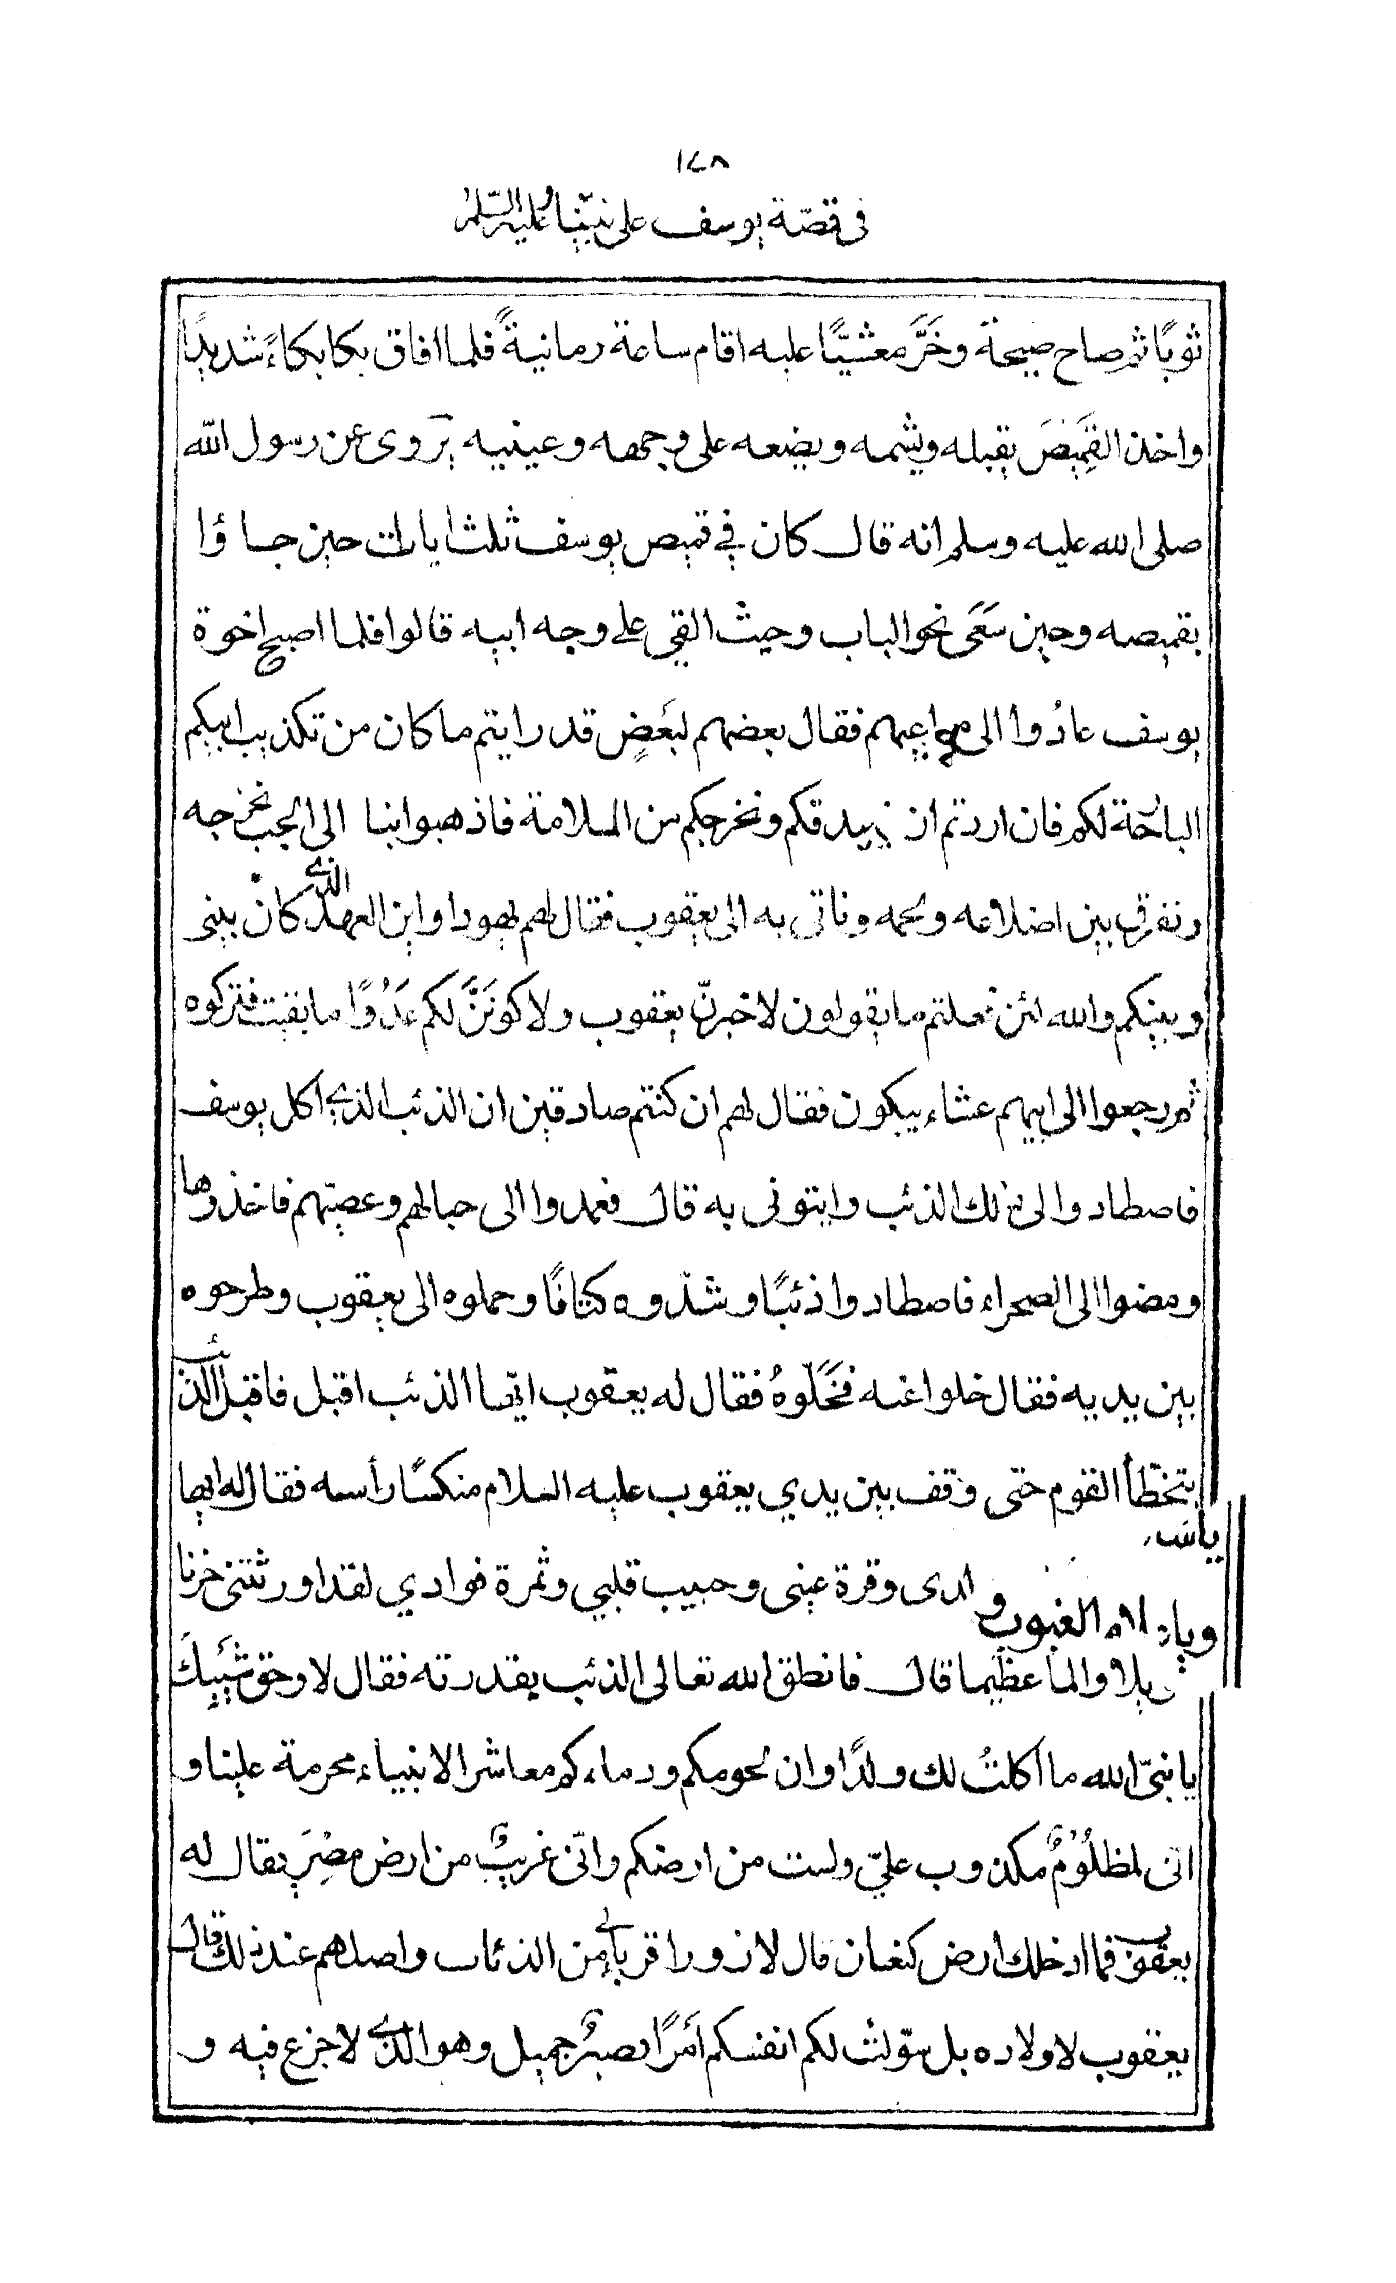 ١٤٨
في قصّة يوسف على نبيّنا وعليه السّلام
ثوبًا ثم صاح صيحة وخَرَّ مغشيًّا عليه اقام ساعة رمانيةً فلما افاق بكا بكاءً شديدًا
واخذ القميصَ يقبله ويشمه ويضعه على وجهه وعينيه يروى عن رسول الله
صلى الله عليه وسلم انه قال كان في قميص يوسف ثلث ايات حين جاؤا
بقميصه وحين سَعَى نحو الباب وحيث القي على وجه ابيه قالوا فلما اصبح اخوة
يوسف عادُوا الى مراعيهم فقال بعضهم لبَعضٍ قد رايتم ما كان من تكذيب ابيكم
البارحة لكم فان اردتم ان يصدقكم ونخرجكم من الملامة فاذهبوا بنا الى الجب نخرجه
ونفرق بين اضلاعه ولحمه وناتى به الى يعقوب فقال لهم يهودا واين العهد الذي كان بينى
وبينكم والله لئن فعلتم ما يقولون لاخبرنّ يعقوب ولاكونَنَّ لكم عَدُوًا ما بقيت فتركوه
ثم رجعوا الى ابيهم عشاء يبكون فقال لهم ان كنتم صادقين ان الذئب الذي اكل يوسف
فاصطادوا لى ذلك الذئب وايتونى به قال فعمدوا الى حبالهم وعصيّهم فاخذوها
ومضوا الى الصحراء فاصطادوا ذئبًا وشدّوه كتافًا وحملوه الى يعقوب وطرحوه
بين يديه فقال خلوا عنه فخَلّوهُ فقال له يعقوب ايّها الذئب اقبل فاقبل الذئب
يتخطّأ القوم حتى وقف بين يدي يعقوب عليه السلام منكسًا رأسه فقال له ايها
ولدى وقرة عينى وحبيب قلبي وثمرة فوادي لقد اورثتنى حزنا
الغيوب
والماً عظيما قال فانطق الله تعالى الذئب بقدرته فقال لا وحق شَيبِكَ
يا نبىّ الله ما اكلتُ لك ولدًا وان لحومكم ودماءكم معاشر الانبياء محرمة علينا و
انى لمظلُوْمٌ مكذوب عليّ ولست من ارضكم وانّى غريبٌ من ارض مِصْرَ فقال له
يعقوب فما ادخلك ارض كنعان قال لازور اقرباءً لي من الذئاب واصلهم عند ذلك قال
يعقوب لاولاده بل سوّلت لكم انفسكم اَمرًا فصبرٌ جميل وهو الذي لا جزع فيه و